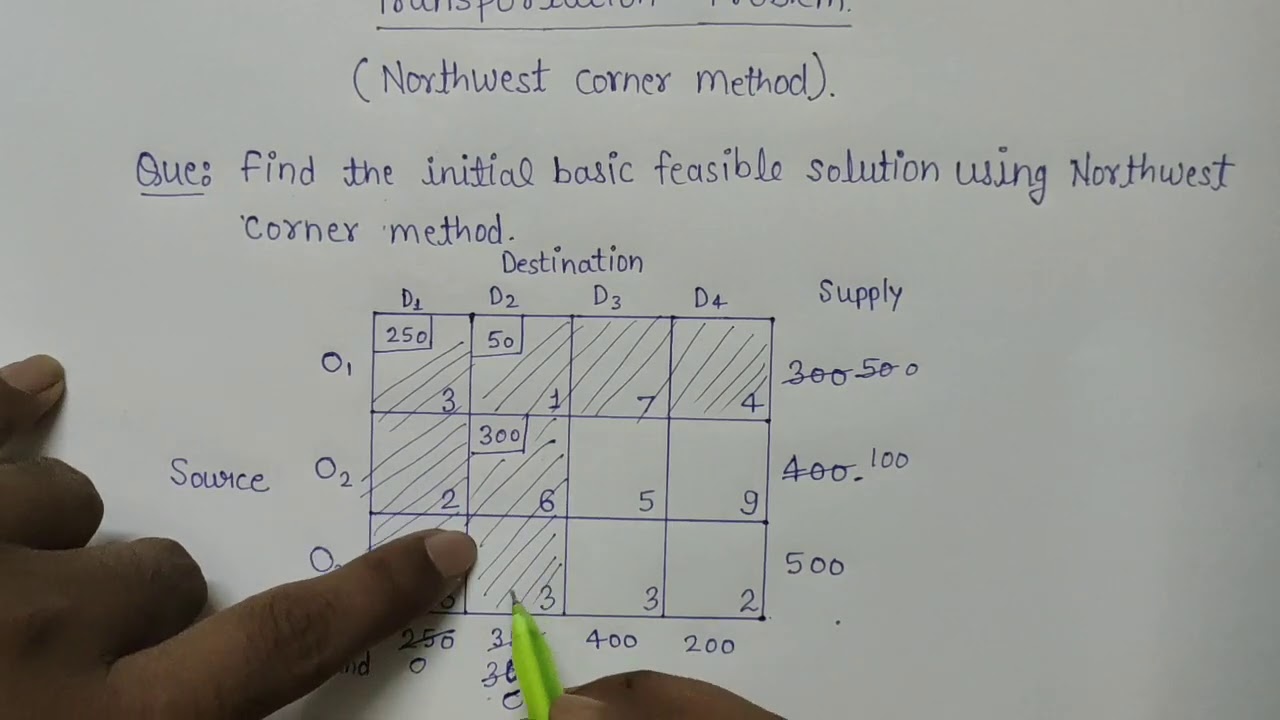 Transportation Problem.
(Northwest corner method).
Que: Find the initial basic feasible solution using Northwest
corner method.
Destination
D1 D2 D3 D4 Supply
250 50
O1 300 50 0
3 1 7 4
300
Source O2 400. 100
2 6 5 9
500
3 3 2
250 400 200
0
0